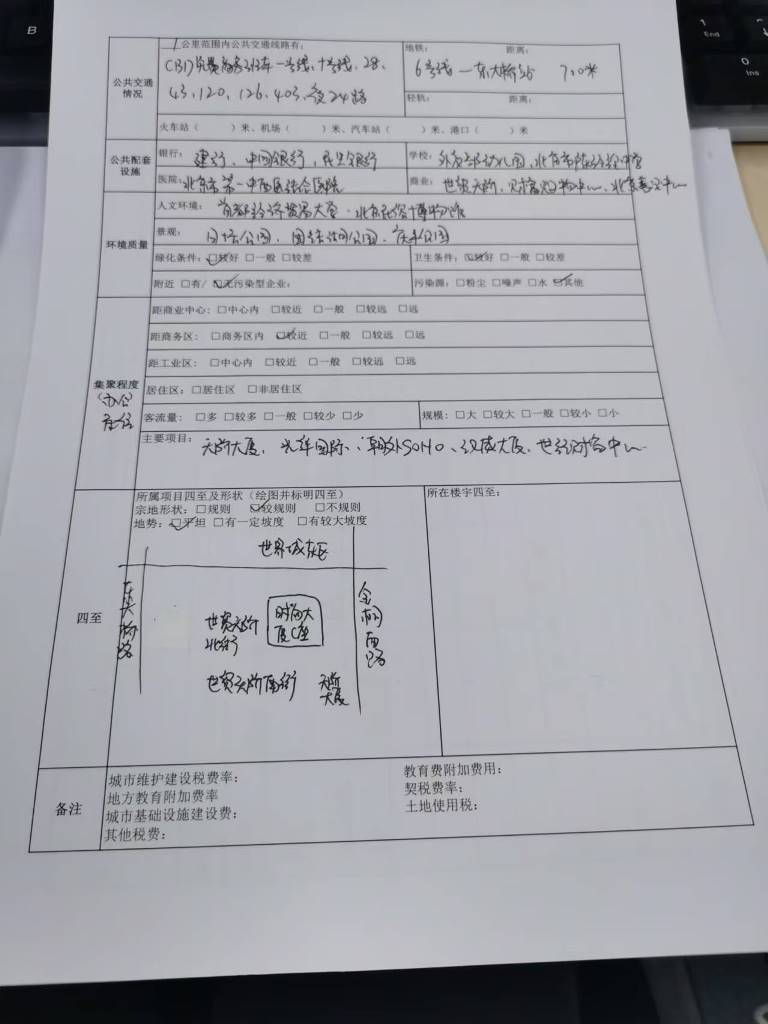 B
1
End
0
Ins
1公里范围内公共交通线路有:
地铁: 距离:
公共交通情况
CBD免费商务班车一号线、十号线、28、
6号线一东大桥站 700米
43、120、126、403、夜24路
轻轨: 距离:
火车站( )米、机场( )米、汽车站( )米、港口( )米
公共配套设施
银行: 建行、中国银行、民生银行
学校: 外交部幼儿园、北京市陈经纶中学
医院: 北京市第一中西医结合医院
商业: 世贸天阶、财富购物中心、北京
环境质量
人文环境: 大堂、北京民俗博物馆
景观: 日坛公园、团结湖公园、庆丰公园
绿化条件: □较好 □一般 □较差
卫生条件: □较好 □一般 □较差
附近 □有/ □无污染型企业:
污染源: □粉尘 □噪声 □水 □其他
集聚程度
(办公
居住
距商业中心: □中心内 □较近 □一般 □较远 □远
距商务区: □商务区内 □较近 □一般 □较远 □远
距工业区: □中心内 □较近 □一般 □较远 □远
居住区: □居住区 □非居住区
客流量: □多 □较多 □一般 □较少 □少
规模: □大 □较大 □一般 □较小 □小
主要项目: 天阶大厦、光华国际、朝外SOHO、汉威大厦、世纪财富中心
四至
所属项目四至及形状(绘图并标明四至)
所在楼宇四至:
宗地形状: □规则 □较规则 □不规则
地势: □平坦 □有一定坡度 □有较大坡度
世界城东区
东大桥路
金桐西路
世贸天阶
北街
时尚大
厦C座
世贸天阶南街
天阶
大厦
备注
城市维护建设税费率:
教育费附加费用:
地方教育附加费率
契税费率:
城市基础设施建设费:
土地使用税:
其他税费: